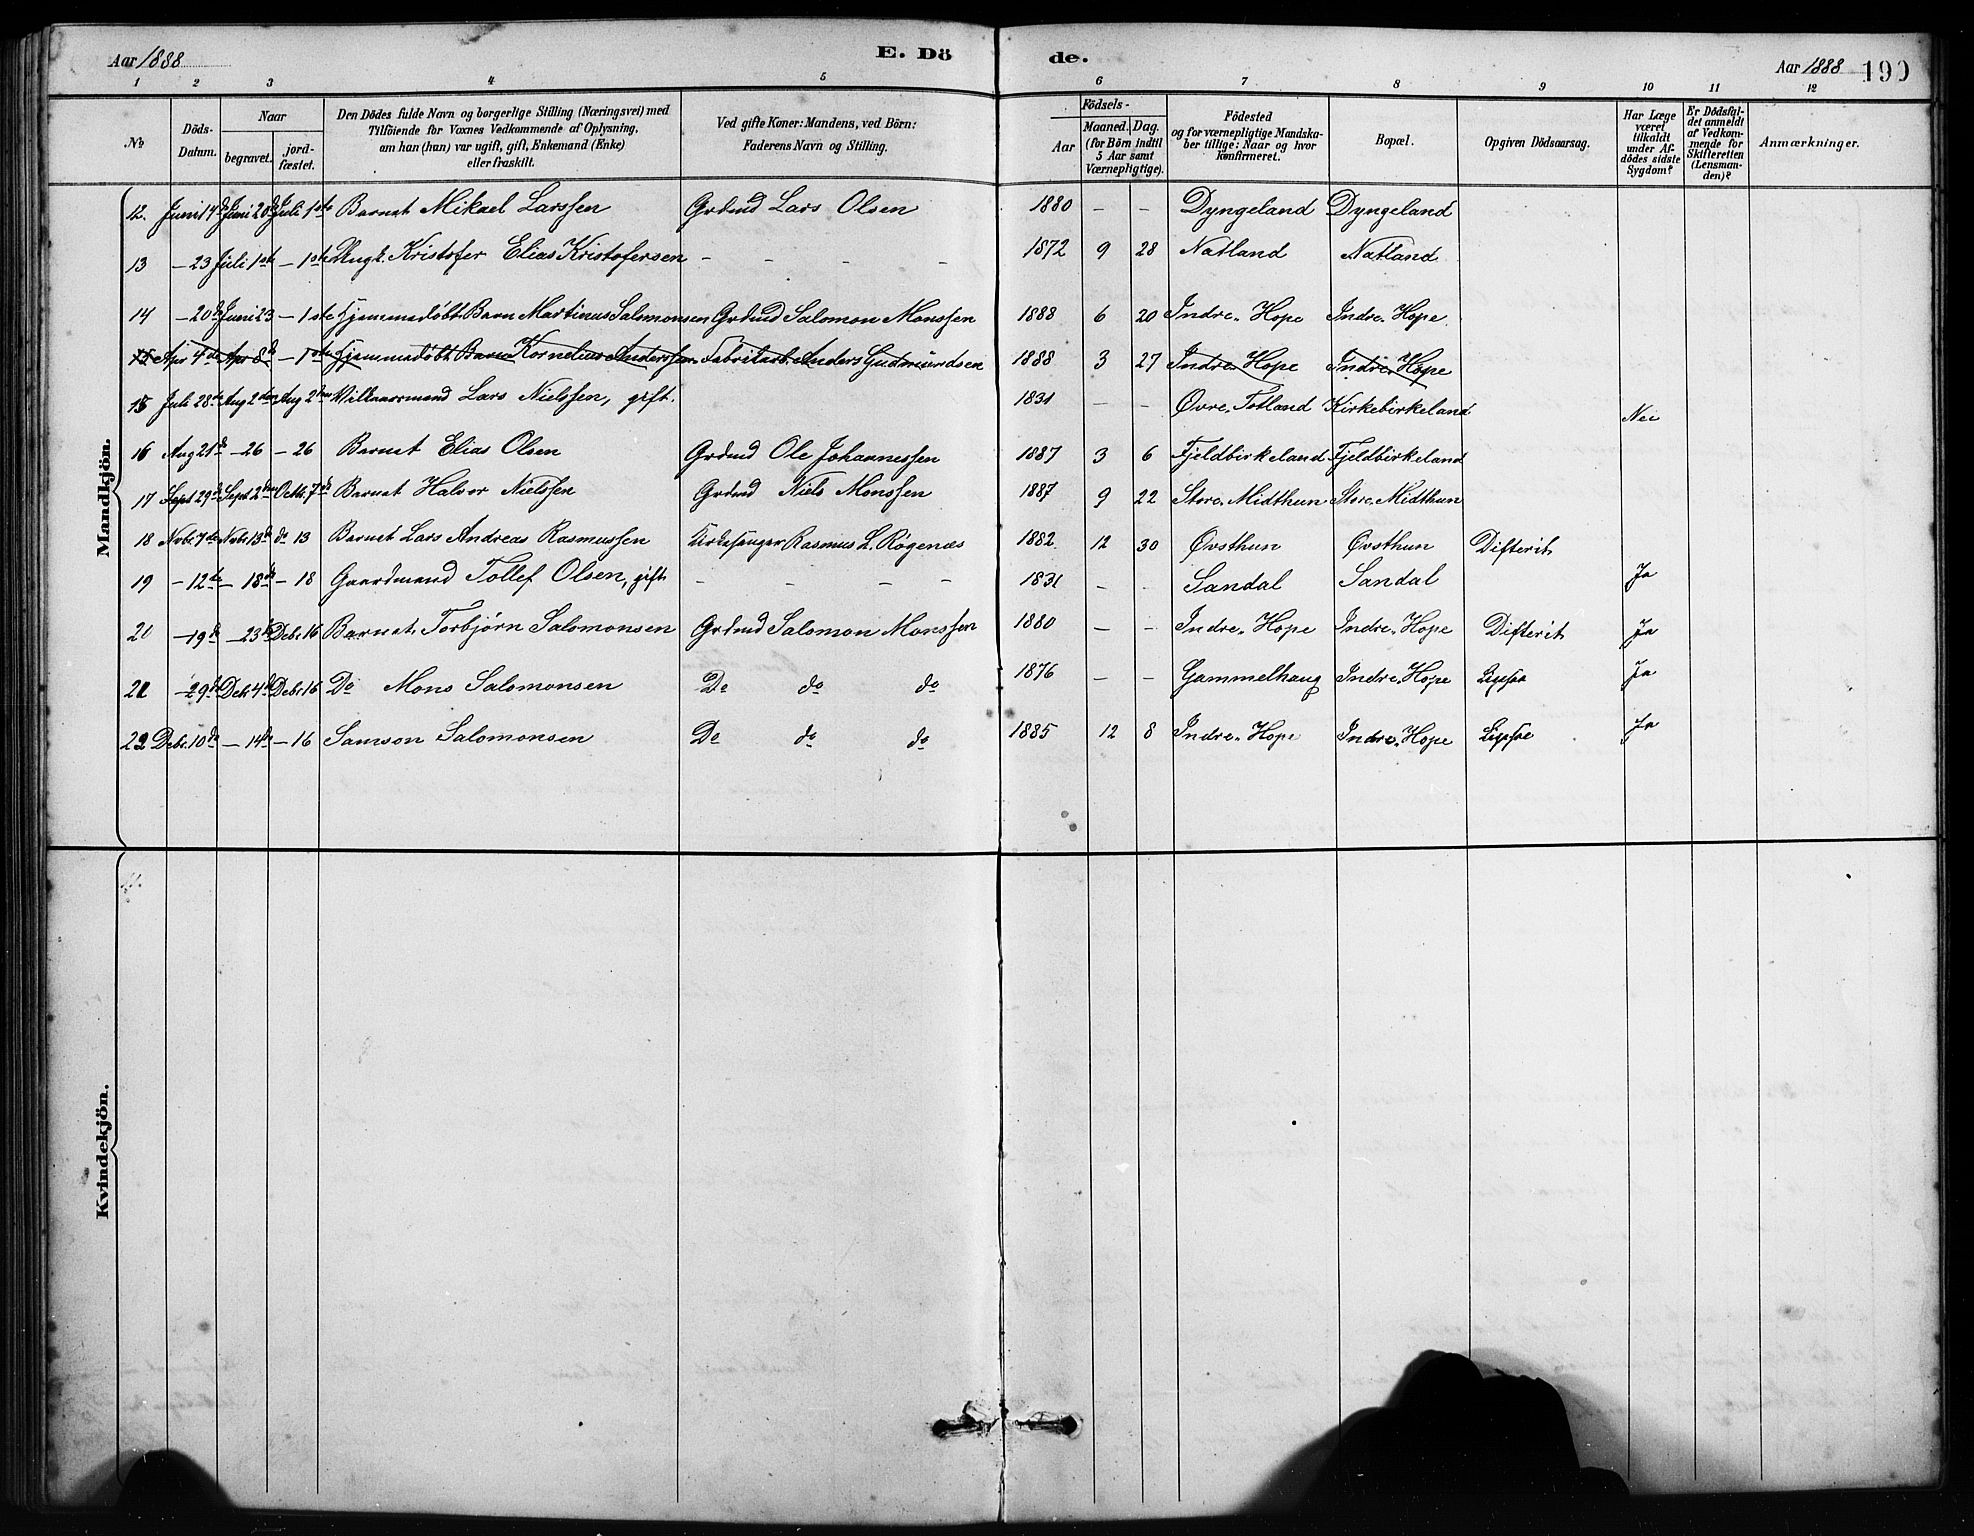 Aar 1888 E. Dö
1 2 3 4 5
№ Döds-Datum. Naar begravet. jord-fæstet. Den Dödes fulde Navn og borgerlige Stilling (Næringsvei) med Tilföiende for Voxnes Vedkommende af Oplysning, om han (hun) var ugift, gift, Enkemand (Enke) eller fraskilt. Ved gifte Koner: Mandens, ved Börn: Faderens Navn og Stilling.
de. Aar 1888 190
6 7 8 9 10 11 12
Födsels- Aar Maaned. Dag. (for Börn indtil 5 Aar samt Værnepligtige). Födested og for værnepligtige Mandskaber tillige: Naar og hvor konfirmeret. Bopæl. Opgiven Dödsaarsag. Har Læge været tilkaldt under Afdödes sidste Sygdom? Er Dödsfaldet anmeldt af Vedkommende for Skifteretten (Lensmanden)? Anmærkninger.
Mandkjön.
12. Juni 14de Juni 20de Juli 1ste Barnet Mikael Larssen Grdmd Lars Olsen 1880 – – Dyngeland Dyngeland
13 – 23 Juli 1ste – 1ste Ungk. Kristofer Elias Kristofersen – – – – 1872 9 28 Natland Natland
14 – 20de Juni 23 – 1ste Hjemmedøbt Barn Martinus Salomonsen Grdmd Salomon Monssen 1888 6 20 Indre Hope Indre Hope
15 Apr 4de Apr 8de – 1ste Hjemmedøbt Barn Kornelius Anderssen Fabrikarb. Anders Gudmundsen 1888 3 27 Indre Hope Indre Hope
15 Juli 28de Aug 2den Aug 2den Vilkaarsmand Lars Nielssen, gift. 1831 – – Øvre Totland Kirkebirkeland Nei
16 Aug 21de – 26 – 26 Barnet Elias Olsen Grdmd Ole Johannessen 1887 3 6 Fjeldbirkeland Fjeldbirkeland
17 Sept 29de Sept 2den Octb. 7de Barnet Halvor Nielssen Grdmd Niels Monssen 1887 9 22 Store Midtthun Store Midtthun
18 Nvbr. 7de Nvbr. 13de do 13 Barnet Lars Andreas Rasmussen Kirkesanger Rasmus L. Røgenæs 1882 12 30 Øvsthun Øvsthun Difterit
19 – 12de – 18de – 18 Gaardmand Tollef Olsen, gift – – – – 1831 – – Sandal Sandal Ja
20 – 19de – 23de Debr 16 Barnet Torbjørn Salomonsen Grdmd Salomon Monssen 1880 – – Indre Hope Indre Hope Difterit Ja
21 – 29de Debr 4de Debr 16 Do Mons Salomonsen Do do do 1876 – – Gammelhaug Indre Hope Ligesaa Ja
22 Debr. 10de – 14de – 16 Samson Salomonsen Do do do 1885 12 8 Indre Hope Indre Hope Ligesaa Ja
Kvindekjön.